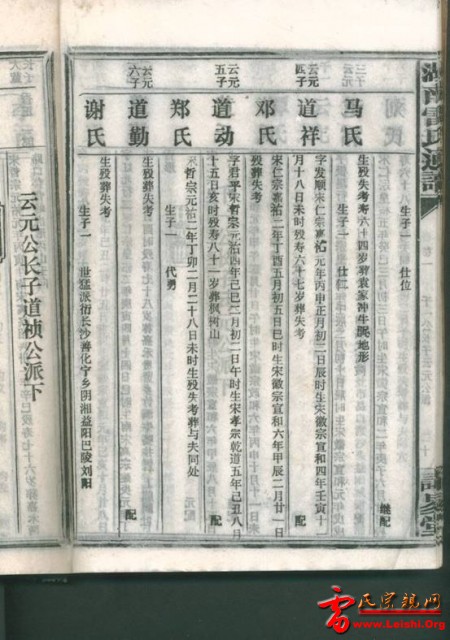 湖南雷氏通譜
生子一 仕位
继配
马氏
生殁失考寿六十四岁葬袁家冲牛眠地形
生子一 仕仁
云元四子
道祥
字发顺宋仁宗嘉祐元年丙申正月初二日辰时生宋徽宗宣和四年壬寅十一
月十八日未时殁寿六十七岁葬失考
配
邓氏
宋仁宗嘉祐二年丁酉五月初五日巳时生宋徽宗宣和六年甲辰二月廿一日
殁葬失考
云元五子
道动
字君平宋哲宗元祐四年己巳二月初二日午时生宋孝宗乾道五年己丑八月
十五日亥时殁寿八十一岁葬枫树山
配
郑氏
宋哲宗元祐二年丁卯二月二十八日未时生殁失考葬与夫同处
生子一 代勇
云元六子
道勤
生殁葬失考
配
谢氏
生殁葬失考
生子一 世猛派衍长沙善化宁乡阴湘益阳巴陵刘阳
云元公长子道祯公派下
雷氏宗亲网
http://www.Leishi.Org